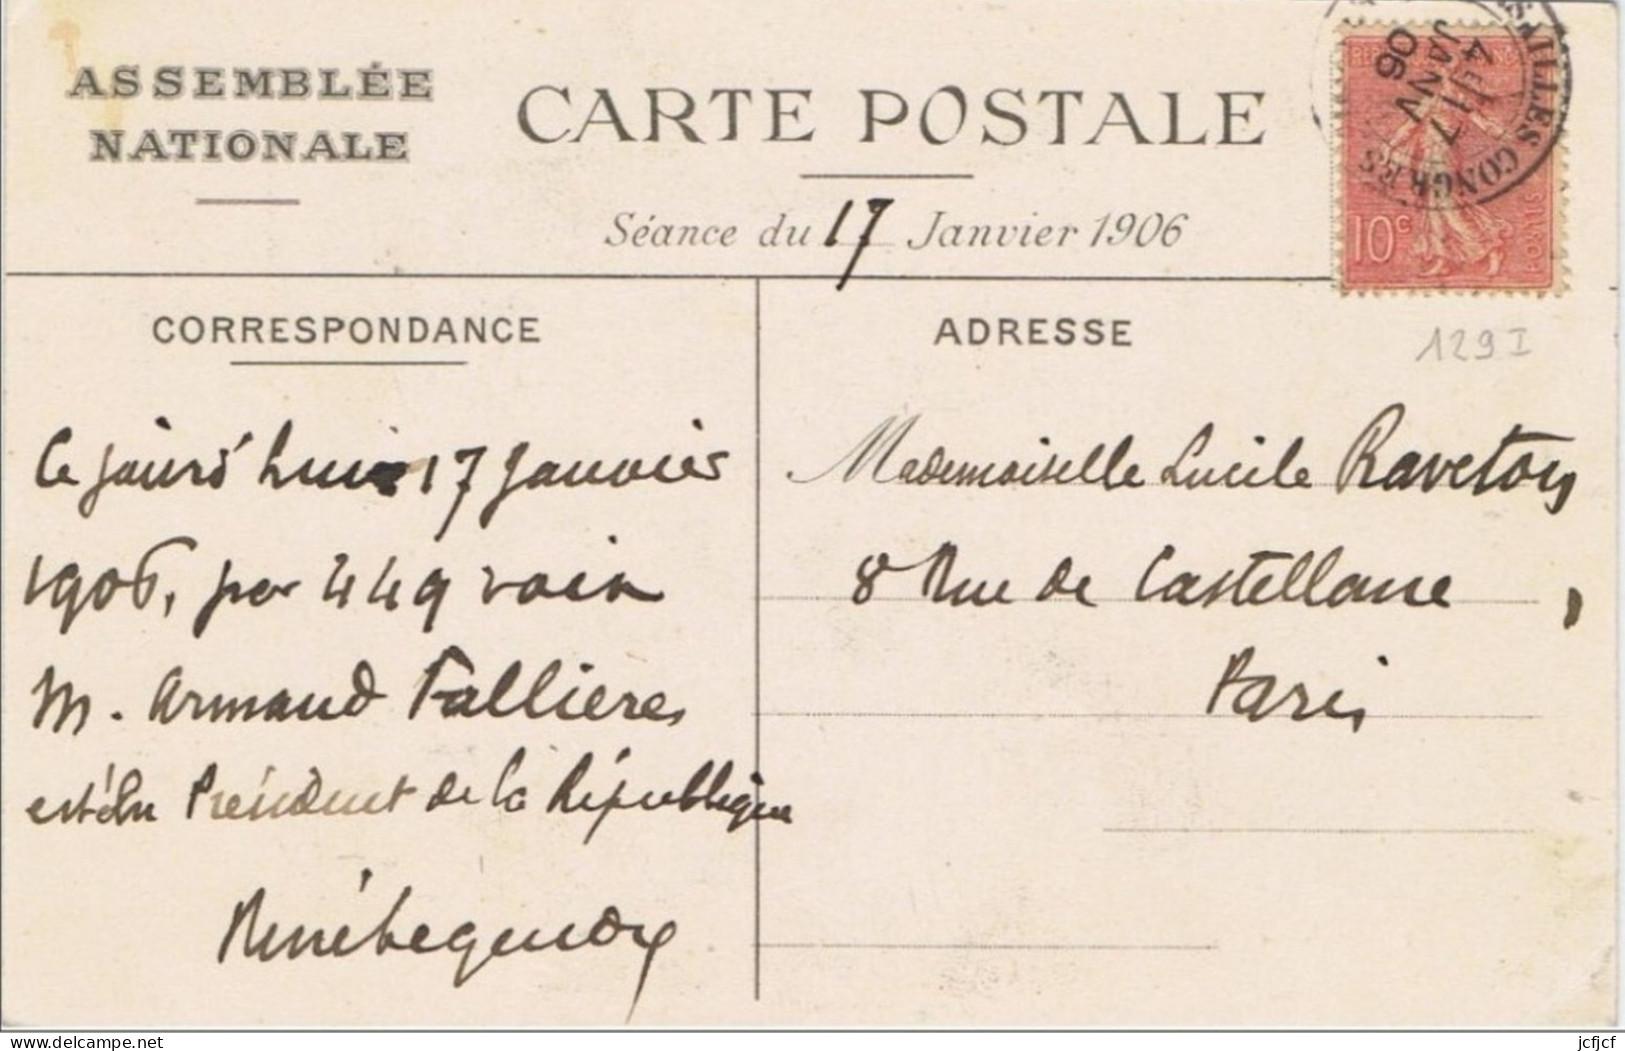 ASSEMBLÉE
NATIONALE
CARTE POSTALE
Séance du 17 Janvier 1906
VERSAILLES CONGRES
4E 17
JANV
06
10c
POSTES
129 I
CORRESPONDANCE
Ce jourd'hui 17 Janvier
1906, par 449 voix
M. Armand Fallieres
est élu Président de la République
ADRESSE
Mademoiselle Lucile Raveton
8 Rue de Castellane
Paris
jcfjcf